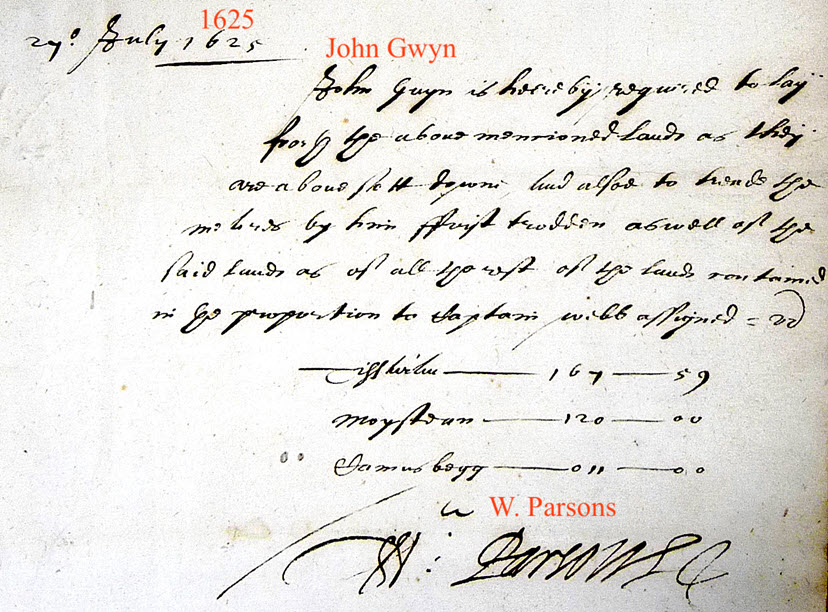 1625
27º July 1625
John Gwyn
John Gwyn is hereby required to lay
forth the above mentioned lands as they
are above sett downe, and alsoe to treade the
meares by him ffirst trodden aswell of the
said lands as of all the rest of the lands contained
in the proportion to Captain Webb assigned =
167 59
Moystean 120 00
Camusbegg 011 00
W. Parsons
W: Parsons